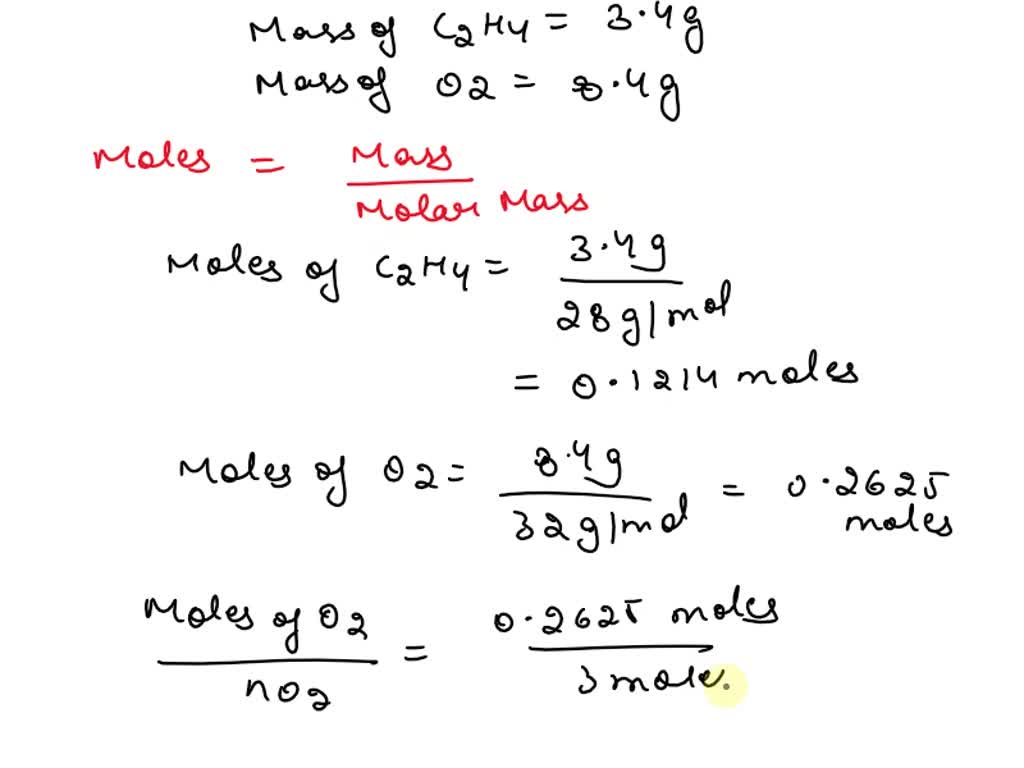 Mass of C2H4 = 3.4g
Mass of O2 = 8.4g
Moles = Mass
Molar Mass
Moles of C2H4 = 3.4g
28g/mol
= 0.1214 moles
Moles of O2 = 8.4g = 0.2625
32g/mol moles
Moles of O2 = 0.2625 moles
nO2 3 mole